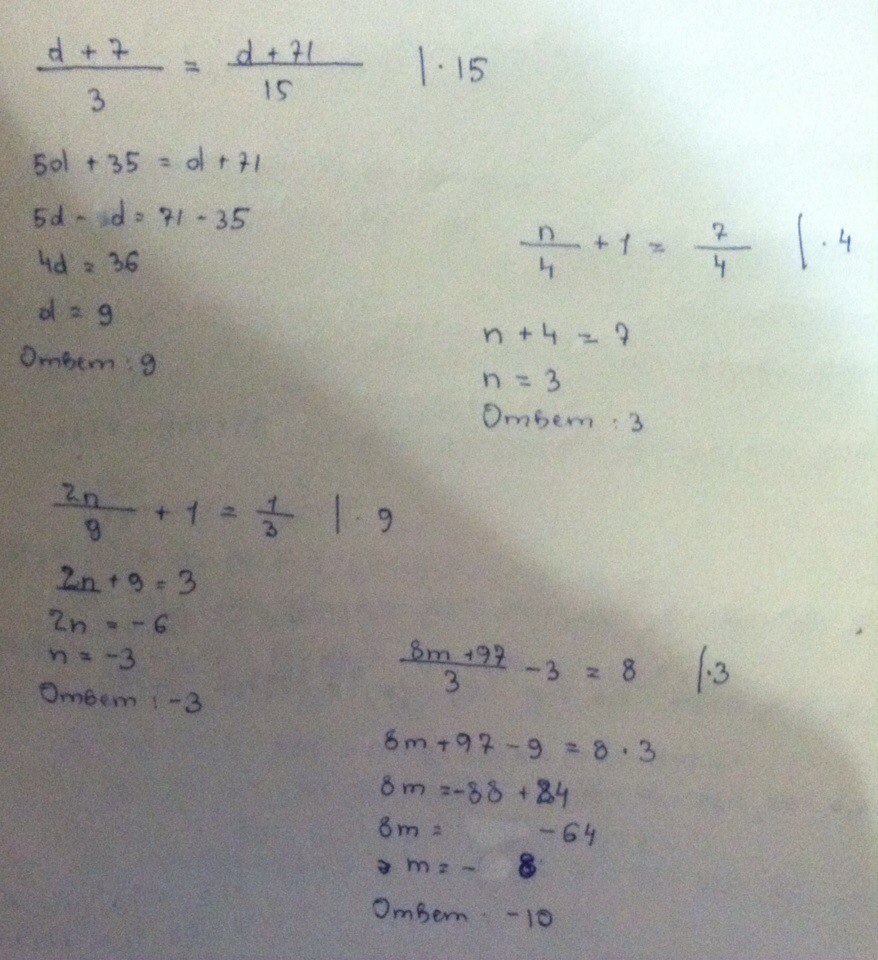 d + 7 / 3 = d + 71 / 15 | · 15
5d + 35 = d + 71
5d - d = 71 - 35
4d = 36
d = 9
Ответ : 9
n / 4 + 1 = 7 / 4 | · 4
n + 4 = 7
n = 3
Ответ : 3
2n / 9 + 1 = 1 / 3 | · 9
2n + 9 = 3
2n = -6
n = -3
Ответ : -3
8m + 97 / 3 - 3 = 8 | · 3
8m + 97 - 9 = 8 · 3
8m = -88 + 24
8m = -64
m = - 8
Ответ : -10